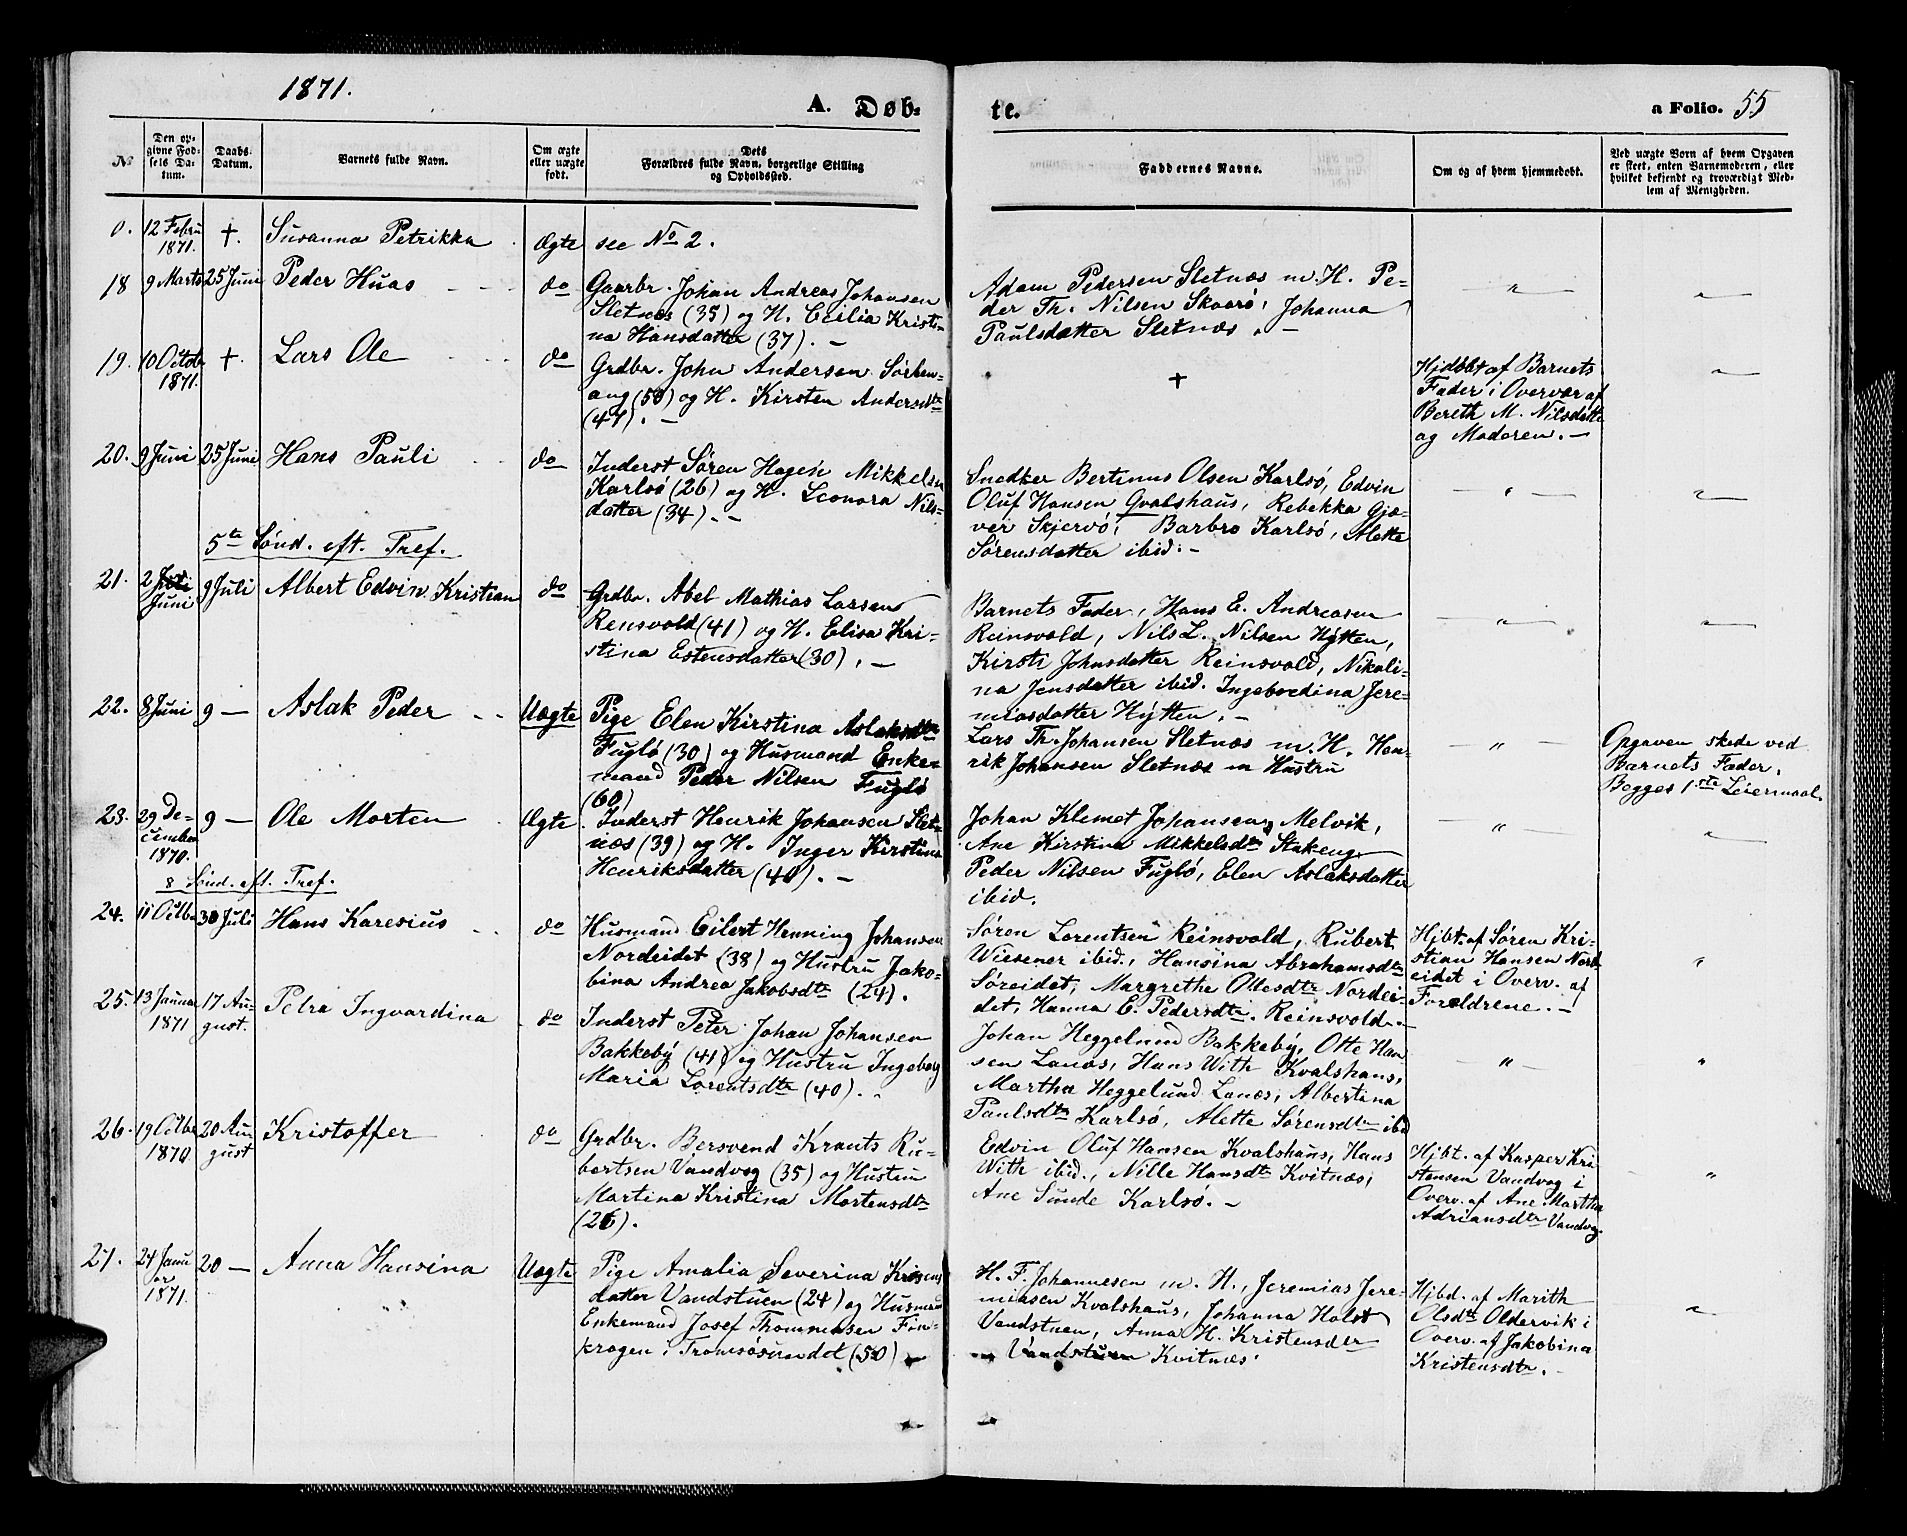 1871.
A. Døb-
te.
a Folio. 55
No
Den op-
givne Fød-
sels Da-
tum.
Daabs-
Datum.
Barnets fulde Navn.
Om ægte
eller uægte
født.
Dets
Forældres fulde Navn, borgerlige Stilling
og Opholdssted.
Faddernes Navne.
Om og af hvem hjemmedøbt.
Ved uægte Børn af hvem Opgaven
er skeet, enten Barnemoderen, eller
hvilket bekjendt og troværdigt Med-
lem af Menigheden.
0.
12 Febru
1871.
+.
Susanna Petrikka
Ægte
see No 2.
18
9 Marts
25 Juni
Peder Huas
do
Gaarbr. Johan Andreas Johansen
Sletnæs (35) og H. Cecilia Kristi-
na Hansdatter (37). -
Adam Pedersen Sletnæs m. H. Pe-
der Th. Nilsen Skaarø, Johanna
Paulsdatter Sletnæs. -
19.
10 Octob
1871.
+.
Lars Ole
do
Grdbr. John Andersen Sørlen-
ang (50) og H. Kirsten Andersdtr
(47). -
+
Hjdøbt af Barnets
Fader i Overvær af
Bereth M. Nilsdattr
og Moderen. -
20.
9 Juni
25 Juni
Hans Pauli
do
Inderst Søren Hagen Mikkelsn
Karlsø (26) og H. Leonora Nils-
datter (34). -
Snedker Bertinus Olsen Karlsø, Edvin
Oluf Hansen Qvalshaus, Rebekka Gjæ-
ver Skjervø, Barbro Karlsø, Alette
Sørensdatter ibid. -
5te Sønd. eft. Tref.
21.
2 Juli
Juni
9 Juli
Albert Edvin Kristian
do
Grdbr. Abel Mathias Larsen
Rensvold (41) og H. Elisa Kri-
stina Estensdatter (30). -
Barnets Fader, Hans E. Andreasen
Reinsvold, Nils L. Nilsen Hytten,
Kirsti Johnsdatter Reinsvold, Nikoli-
na Jensdatter ibid. Ingebordina Jere-
miasdatter Hytten. -
22.
8 Juni
9 —
Aslak Peder
Uægte
Pige Elen Kirstina Aslaksdtr
Fuglø (30) og Husmand Enke-
mand Peder Nilsen Fuglø
(60)
Lars Th. Johansen Sletnæs m. H. Hen-
rik Johansen Sletnæs m Hustru
Opgaven skede ved
Barnets Fader.
Begges 1ste Leiermaal.
23.
29 De-
cember
1870.
9 —
Ole Morten
Ægte
Inderst Henrik Johansen Slet-
næs (39) og H. Inger Kirstina
Henriksdatter (40). -
Johan Klemet Johansen Melvik,
Ane Kirstina Mikkelsdtr Stakeng
Peder Nilsen Fuglø, Elen Aslaksdatter
ibid.
8 Sønd. eft. Tref.
24.
11 Octbr
30 Juli
Hans Karesius
do
Husmand Eilert Henning Johansen
Nordeidet (38) og Hustru Jako-
bina Andrea Jakobsdtr (24).
Søren Lorentsen Reinsvold, Rubert
Wiesener ibid., Hansina Abrahamsdtr
Søreidet, Margrethe Ollesdtr Nordei-
det, Hanna E. Pedersdtr. Reinsvold -
Hjbt. af Søren Kri-
stian Hansen Nord-
eidet i Overv. af
Forældrene. -
25.
13 Januar
1871
17 Au-
gust.
Petra Ingvardina
do
Inderst Peter Johan Johansen
Bakkeby (41) og Hustru Ingeborg
Maria Lorentsdtr (40). -
Johan Heggelund Bakkeby, Otte Han
sen Lanæs, Hans With Kvalshaus,
Martha Heggelund Lanæs, Albertina
Paulsdtr Karlsø, Alette Sørensdtr ibid
26.
19 Octbr
1870
20 Au-
gust
Kristoffer
do
Grdbr. Bersvend Krants Ru-
bertsen Vandvog (35) og Hustru
Martina Kristina Mortensdtr
(26).
Edvin Oluf Hansen Kvalshaus, Hans
With ibid., Nille Hansdtr Kvitnæs,
Ane Sunde Karlsø. -
Hjbt. af Kasper Kri
stensen Vandvog i
Overv. af Ane Martha
Adriansdtr Vandvog.
27.
24 Janu
ar
1871.
20 —
Anna Hansina
Uægte
Pige Amalia Severina Kristens
datter Vandstuen (24) og Husmand
Enkemand Josef Trommesen Fin-
krogen i Tromsøsundet (50)
H. F. Johannesen m. H., Jeremias Jere-
miasen Kvalshaus, Johanna Holst
Vandstuen, Anna H. Kristensdtr
Vandstuen Kvitnæs.
Hjbd. af Marith
Olsdtr Oldervik i
Overv. af Jakobina
Kristensdtr. -